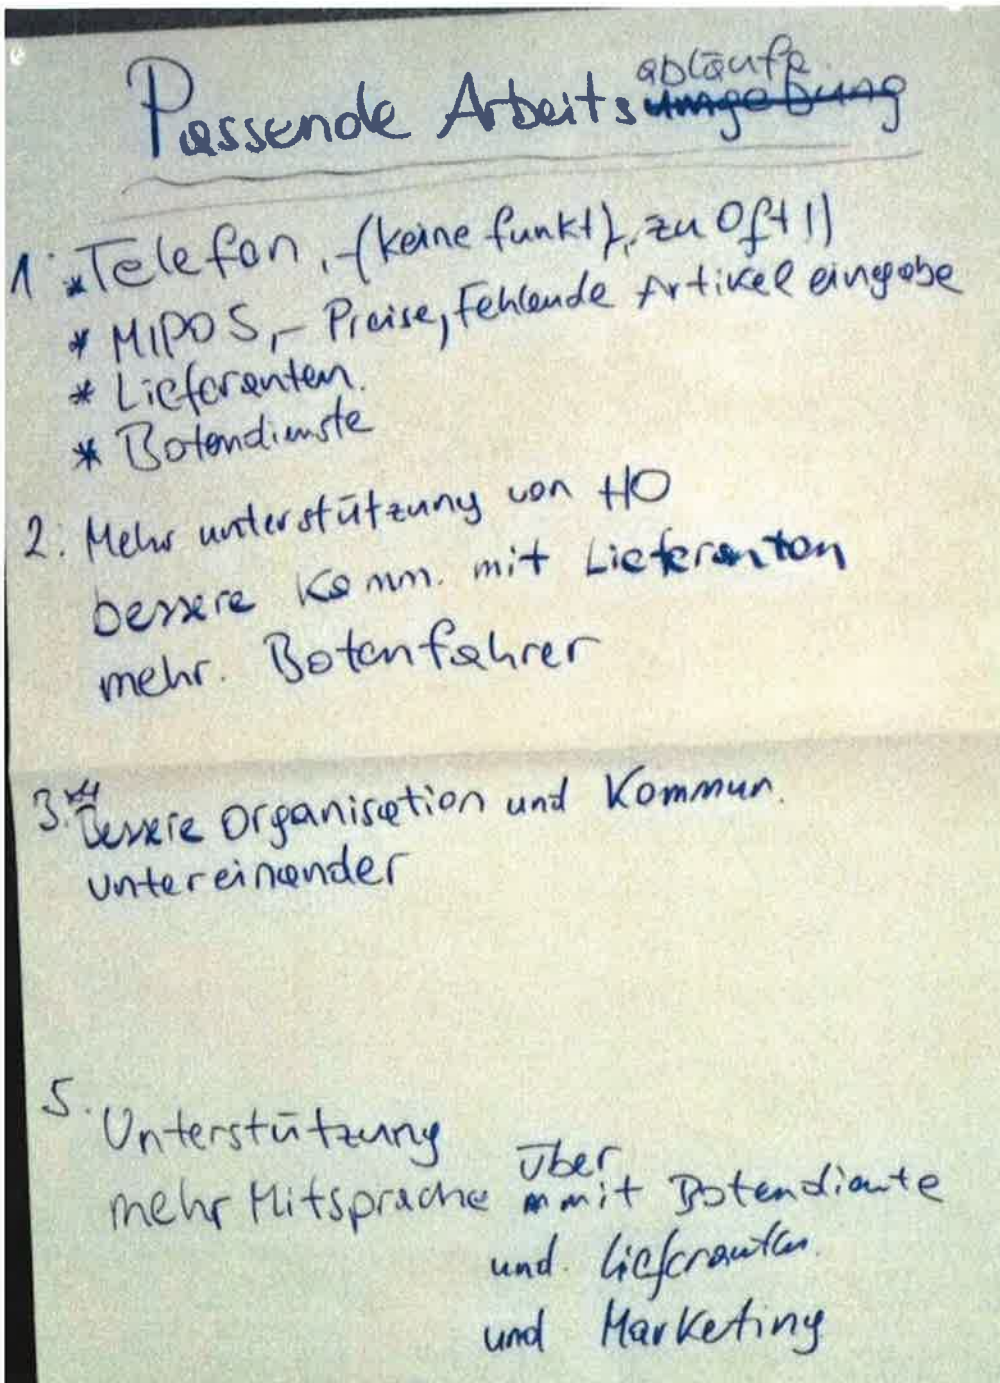 Passende Arbeitsumgebung abläufe.
1. * Telefon, -(keine funkt), zu oft!)
* MIPOS, - Preise, Fehlende Artikel eingabe
* Lieferanten.
* Botendienste
2. Mehr unterstützung von HO
bessere Komm. mit Lieferanten
mehr. Botenfahrer
3. Bessere Organisation und Kommun.
untereinander
5. Unterstützung
mehr Mitsprache über mit Botendiente
und. Lieferanten.
und Marketing